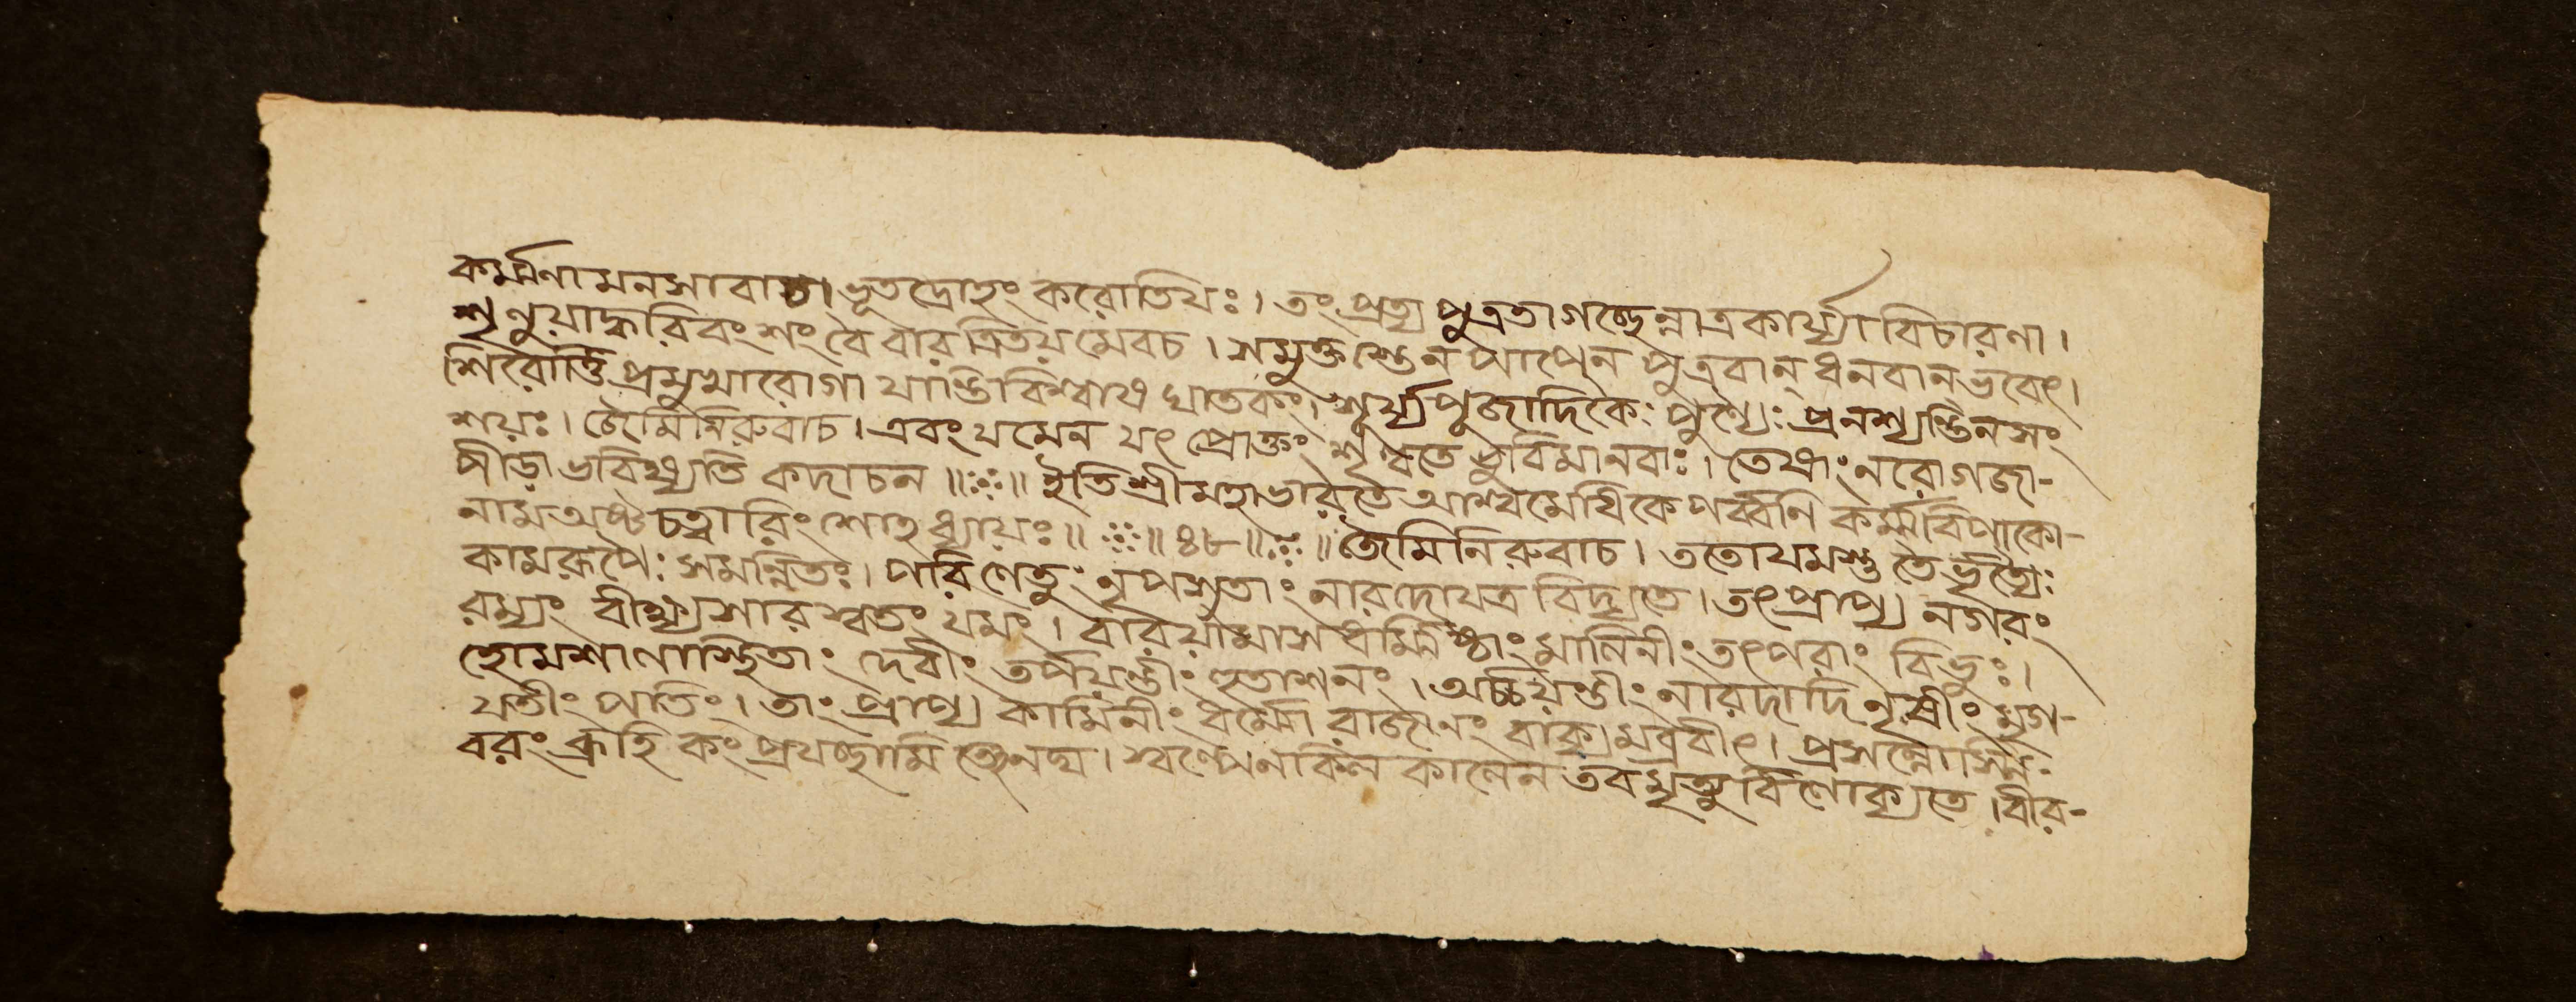 কর্ম্মণা মনসা বাচা ভূতদ্রোহং করোতি যঃ। তং প্রত্য পুত্রতা গচ্ছেন্নাত্র কার্য্যা বিচারণা।
শৃণুয়াদ্ধরিবংশং বৈ বারত্রিতয়মেবচ। সমুক্তস্তেন পাপেন পুত্রবান্ ধনবান্ ভবেৎ।
শিরোর্ত্তি প্রমুখা রোগা যান্তি বিশ্বাস ঘাতকং। সূর্য্যপূজাদিকৈঃ পুণ্যৈঃ প্রনশ্যন্তি ন সং
শয়ঃ। জৈমিনিরুবাচ। এবং যমেন যৎ প্রোক্তং শৃণ্বতে ভুবিমানবাঃ। তেষাং ন রোগজা-
পীড়া ভবিষ্যতি কদাচন॥ ॥ ইতি শ্রীমহাভারতে আশ্বমেধিকে পর্ব্বণি কর্ম্মবিপাকো-
নাম অষ্টচত্বারিংশোহধ্যায়ঃ॥ ॥৪৮॥ ॥ জৈমিনিরুবাচ। ততো যমস্তু তৈর্ভৃত্যৈঃ
কামরূপৈঃ সমন্বিতঃ। পরিণেতুং নৃপসুতাং নারদো যত্র বিদ্যতে। তৎ প্রাপ্য নগরং
রম্যং বীক্ষ্য সারস্বতং যমং। বারয়ামাস ধর্ম্মিষ্ঠাং মালিনীং তৎপরাং বিভুঃ।
হোমশালাস্থিতাং দেবীং তর্পয়ন্তীং হুতাশনং। অর্চ্চয়ন্তীং নারদাদি নৃষীং মৃগ-
যতীং পতিং। তাং প্রাপ্য কামিনীং ধর্ম্মো রাজানং বাক্যমব্রবীৎ। প্রসন্নোস্মি
বরং ব্রূহি কং প্রযচ্ছামি তেনঘ। স্বল্পেন কিল কালেন তব মৃত্যুর্বিলোক্যতে। বীর-